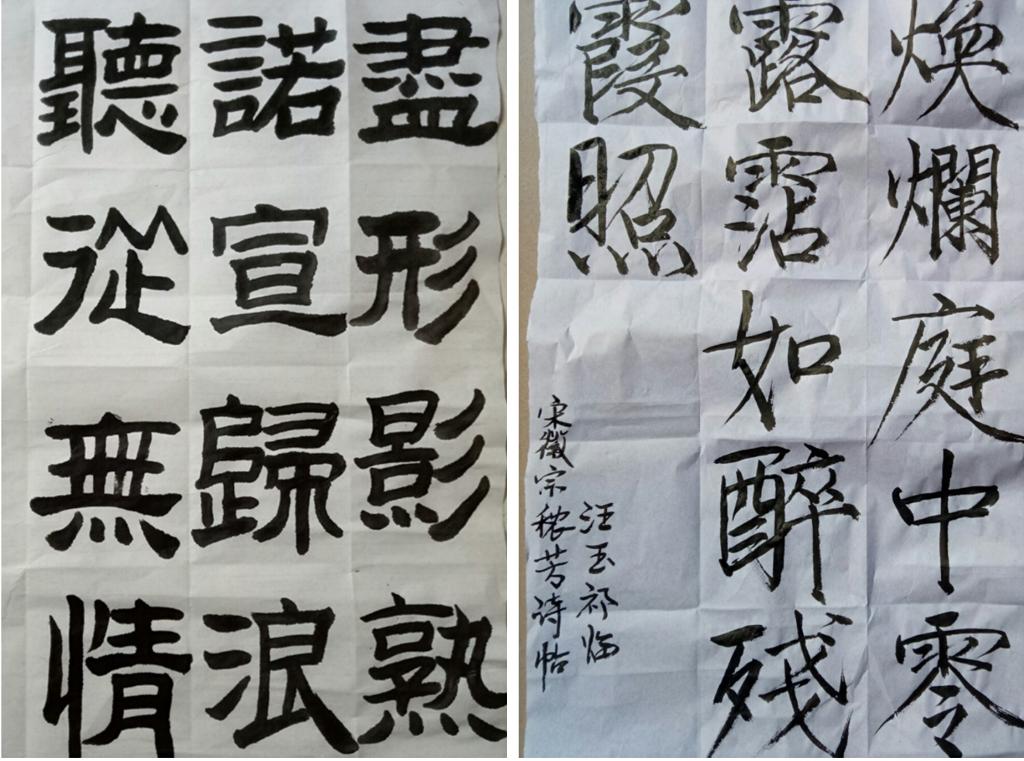 盡形影熟
諾宣歸浪
聽從無情
煥爛庭中零
露霑如醉殘
霞照
汪玉祁临
宋徽宗秾芳诗帖